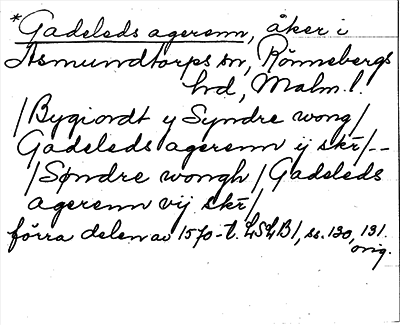 *Gadeleds agerenn, åker i
Asmundtorps sn, Rönnebergs
hd, Malm. l.
/Bygiordt y Syndre wong/
Gadeleds agerenn ij skr̄/--
/Søndre wongh/Gadeleds
agerenn vij skr̄/,
förra delen av 1570-t. LSLB1, ss. 130, 131.
orig.